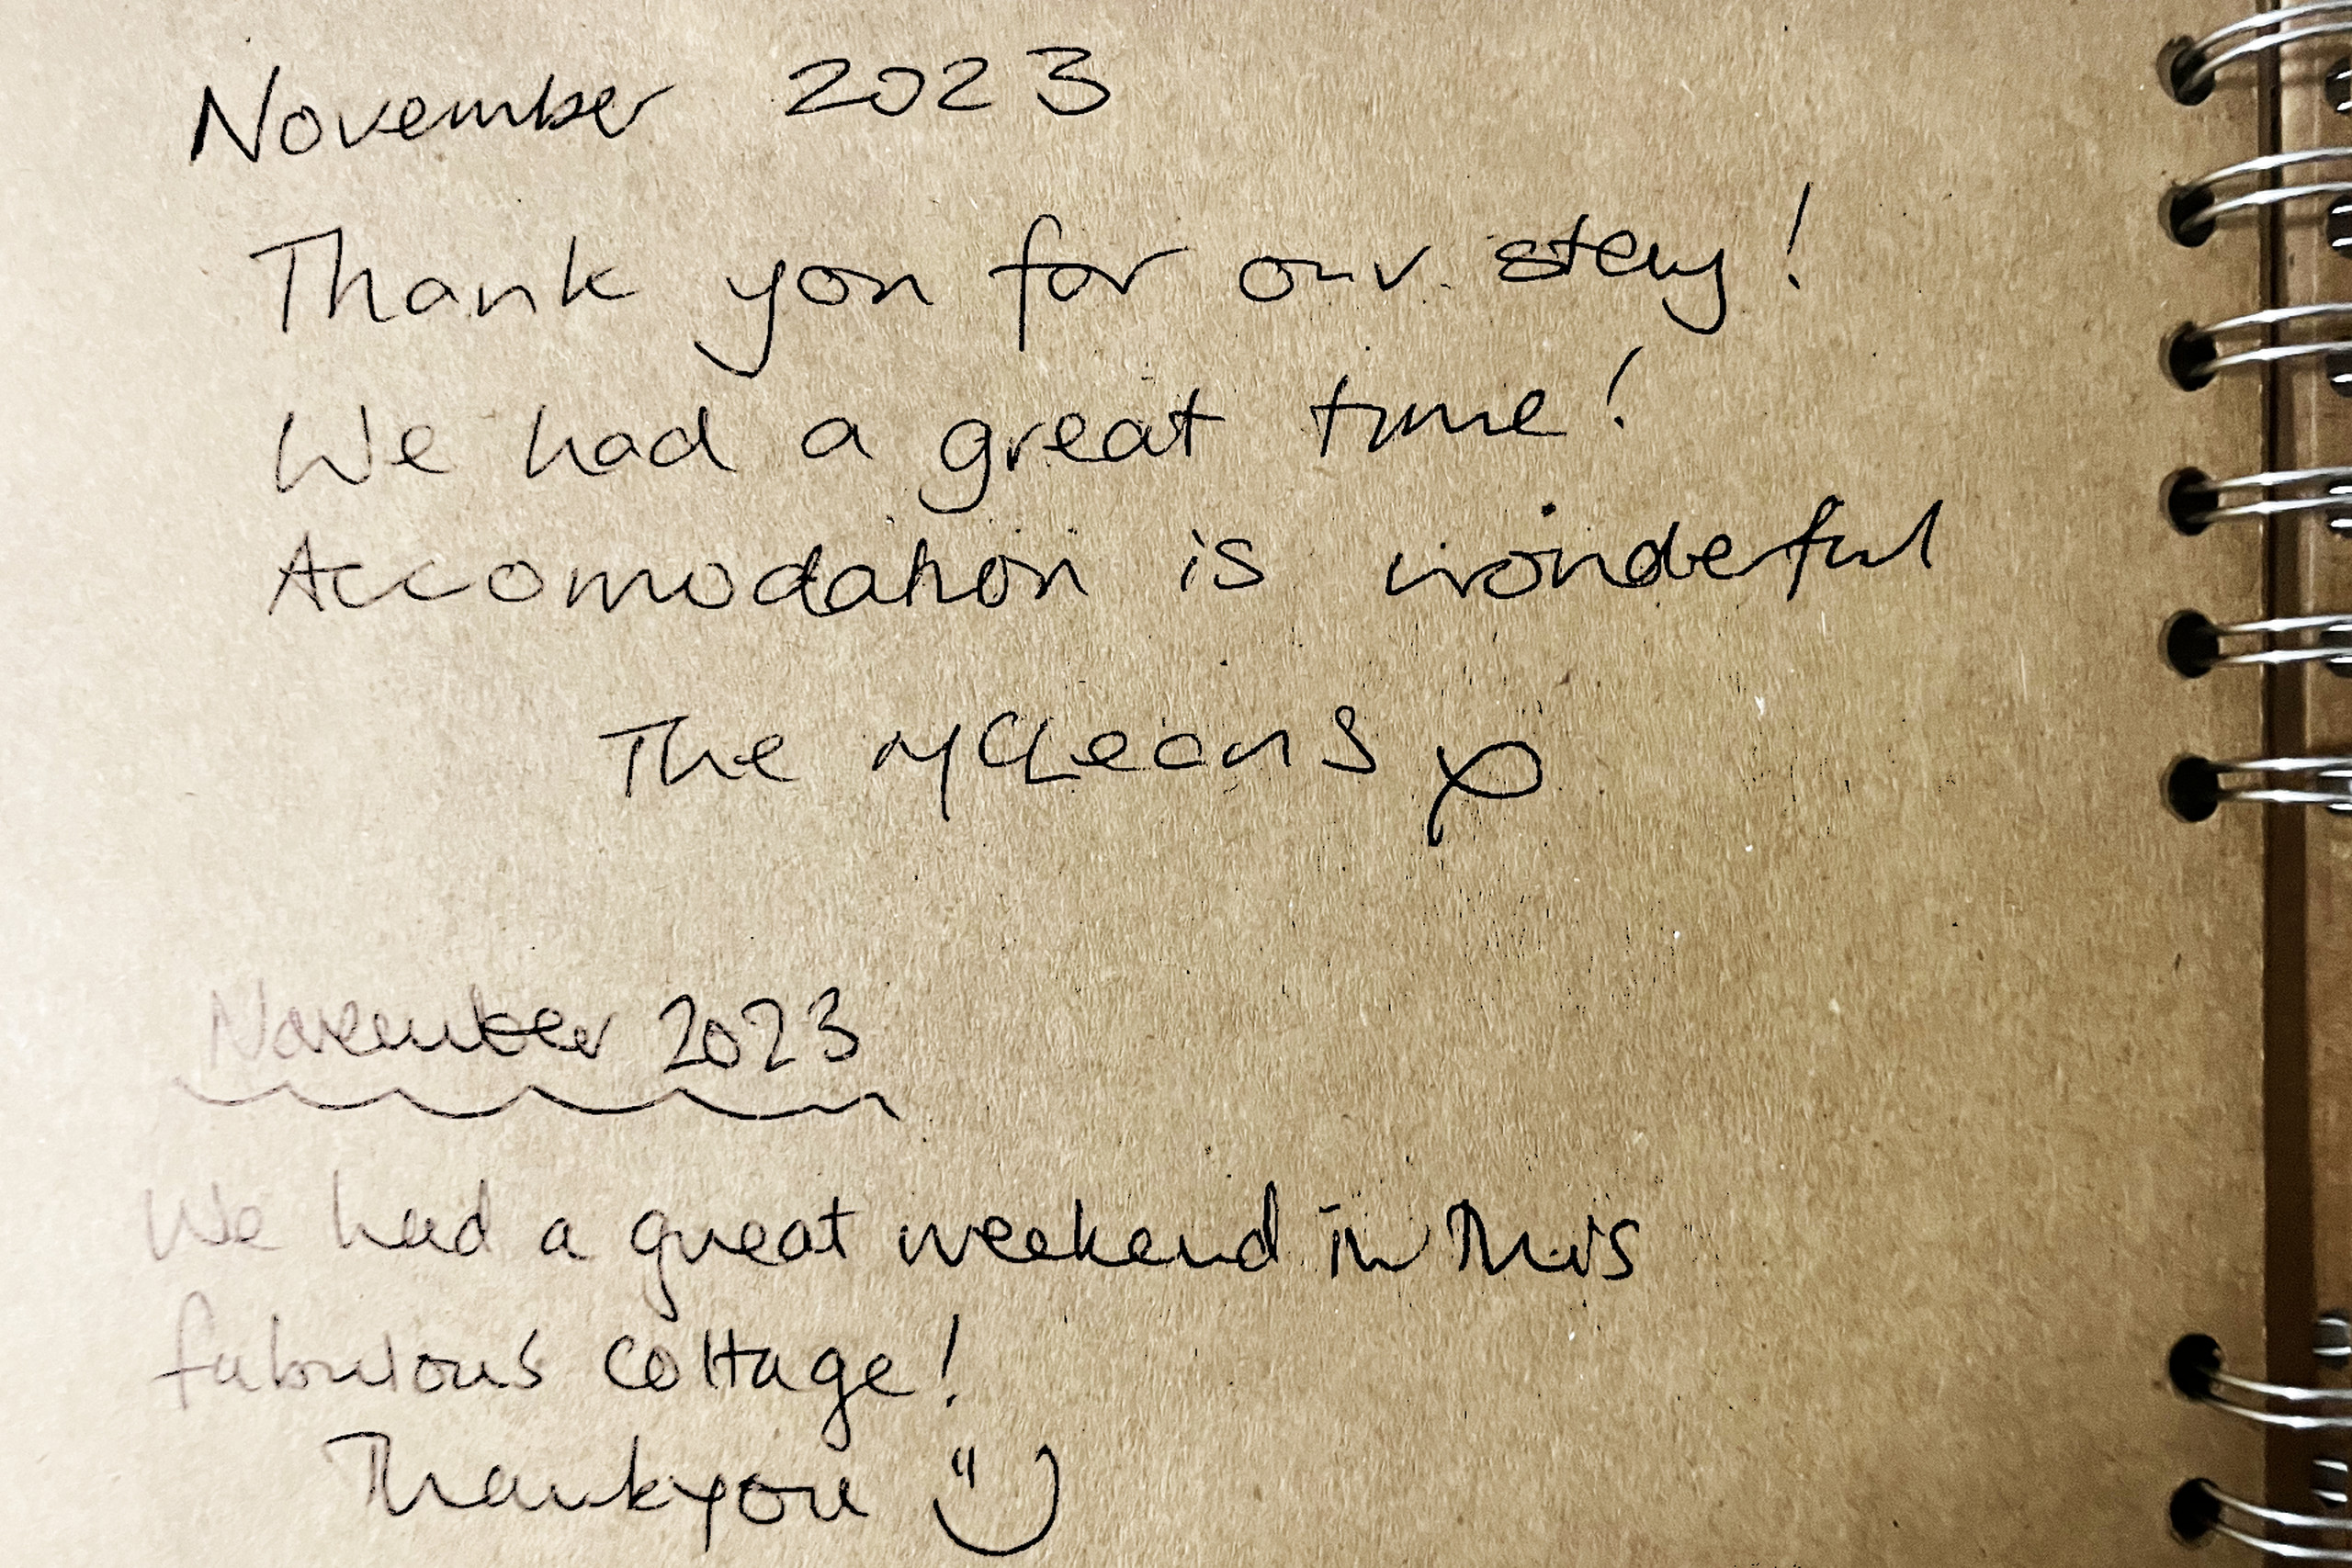 November 2023
Thank you for our stay!
We had a great time!
Accomodation is wonderful
The McLeans x
November 2023
We had a great weekend in this
fabulous cottage!
Thankyou